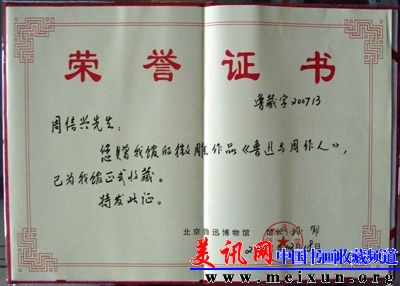 荣誉证书
鲁藏字200713
周信兴先生：
您赠我馆的微雕作品《鲁迅与周作人》，
已为我馆正式收藏。
特发此证。
北京鲁迅博物馆 馆长
美讯网 中国书画收藏频道
www.meixun.org